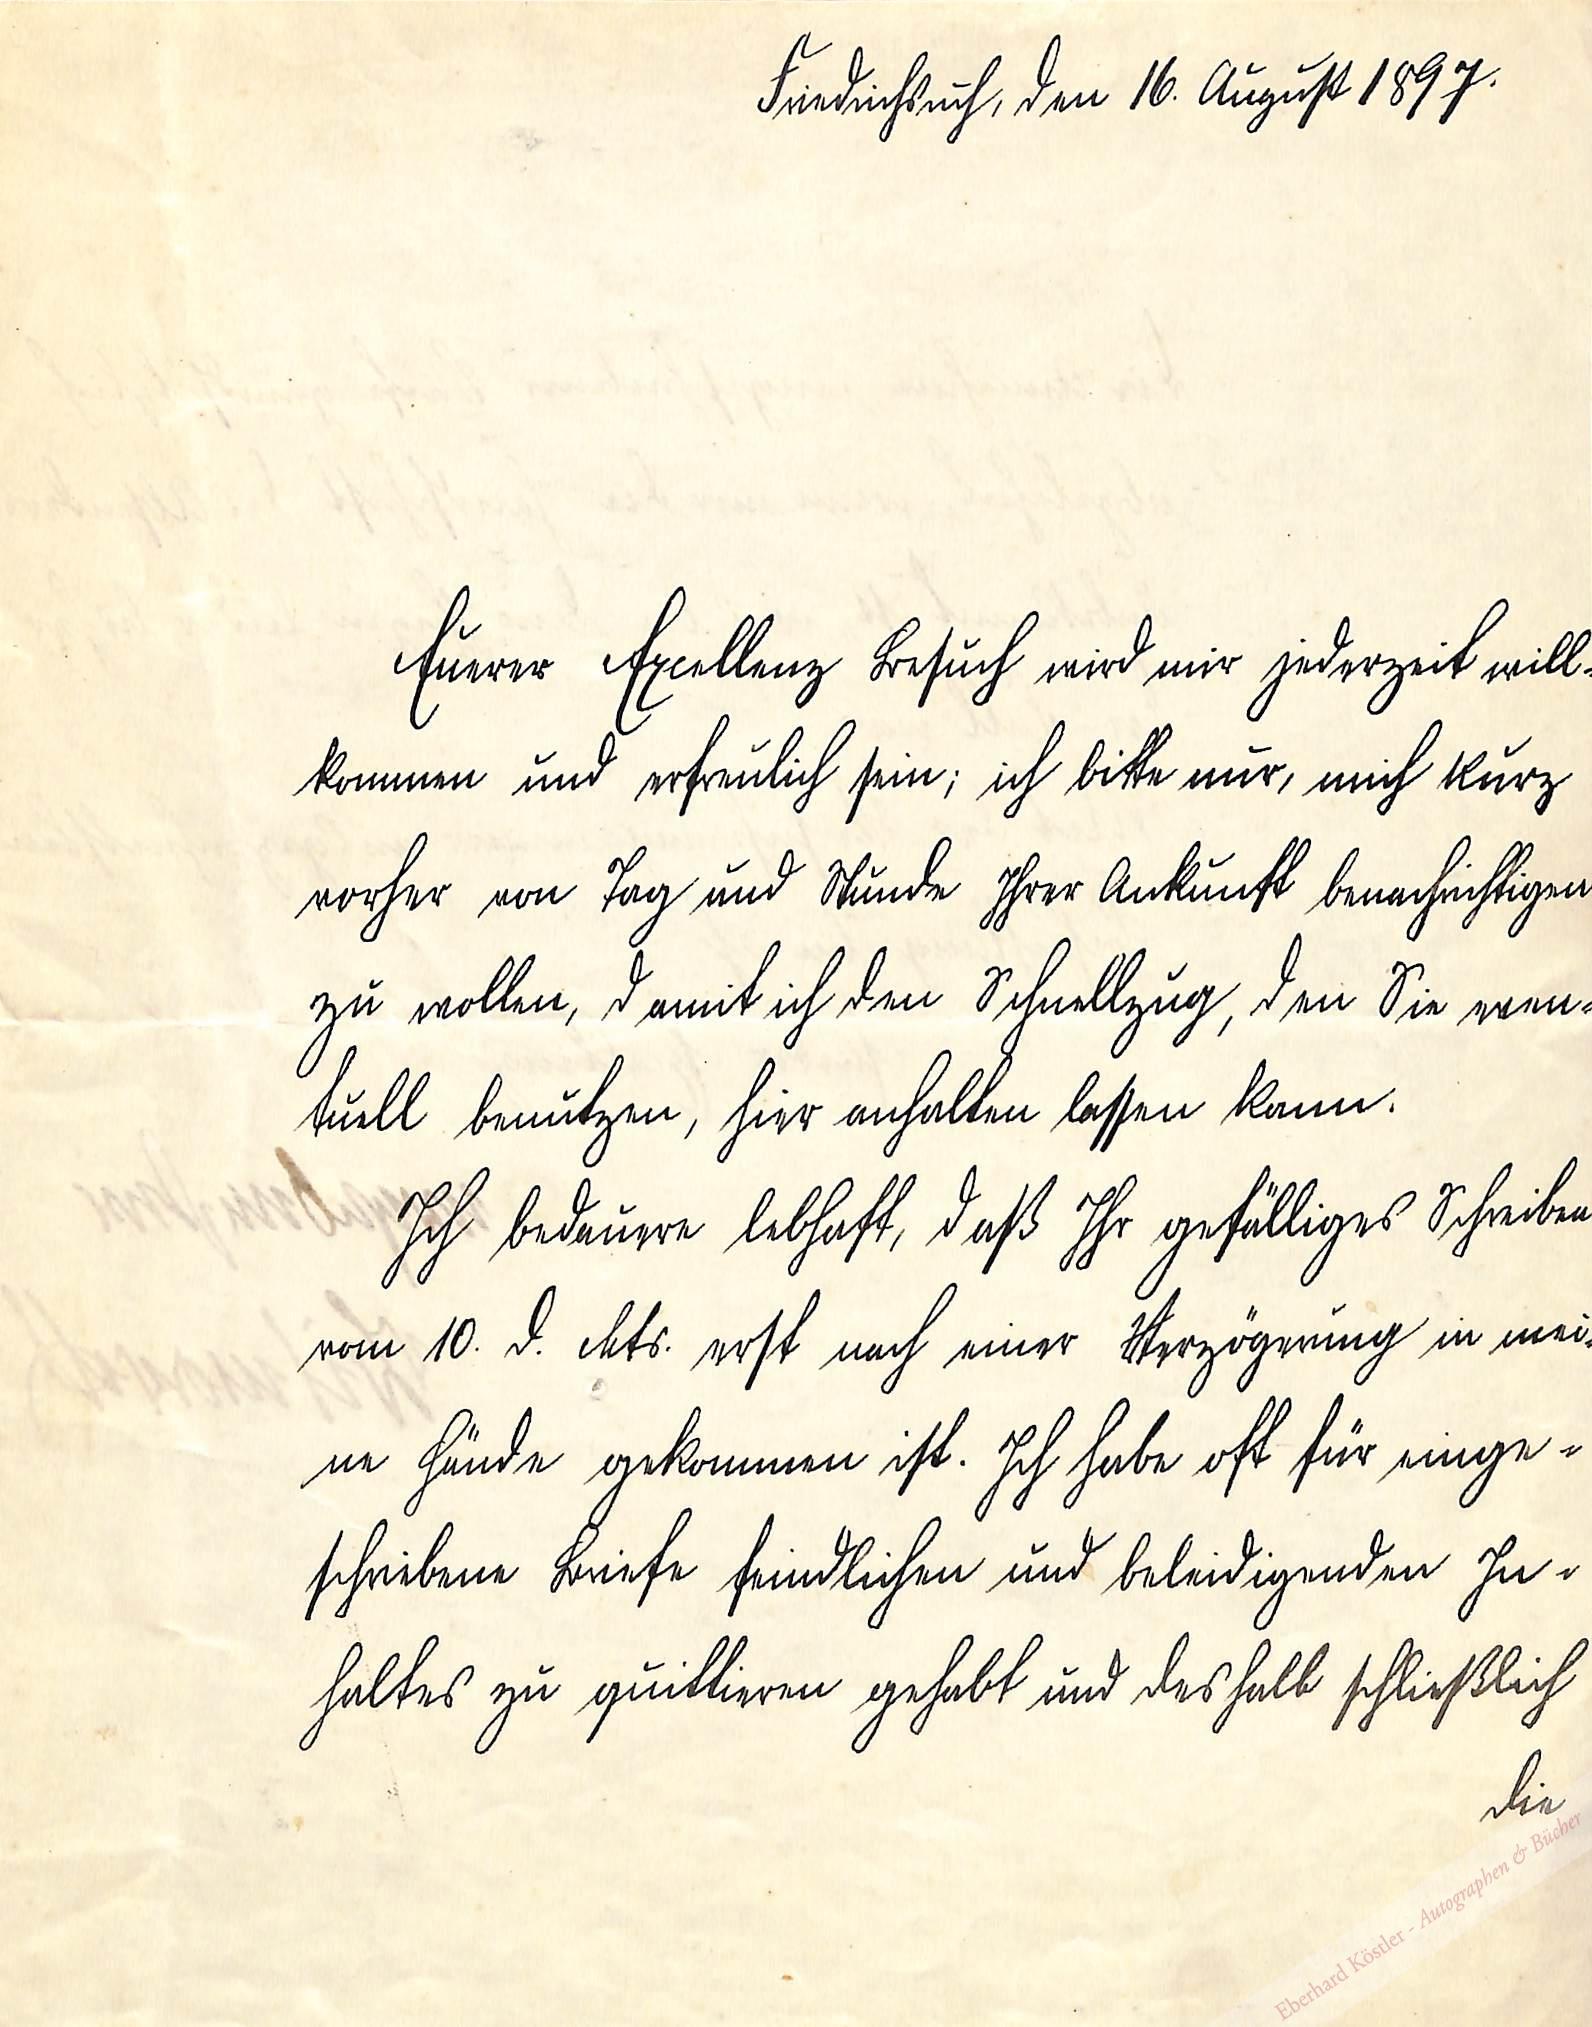 Friedrichsruh, den 16. August 1897.
Euerer Excellenz Besuch wird mir jederzeit will-
kommen und erfreulich sein; ich bitte nur, mich kurz
vorher von Tag und Stunde Ihrer Ankunft benachrichtigen
zu wollen, damit ich den Schnellzug, den Sie even-
tuell benutzen, hier anhalten lassen kann.
Ich bedauere lebhaft, daß Ihr gefälliges Schreiben
vom 10. d. Mts. erst nach einer Verzögerung in mei-
ne Hände gekommen ist. Ich habe oft für einge-
schriebene Briefe feindlichen und beleidigenden In-
haltes zu quittieren gehabt und deshalb schließlich
die
Eberhard Köstler - Autographen & Bücher